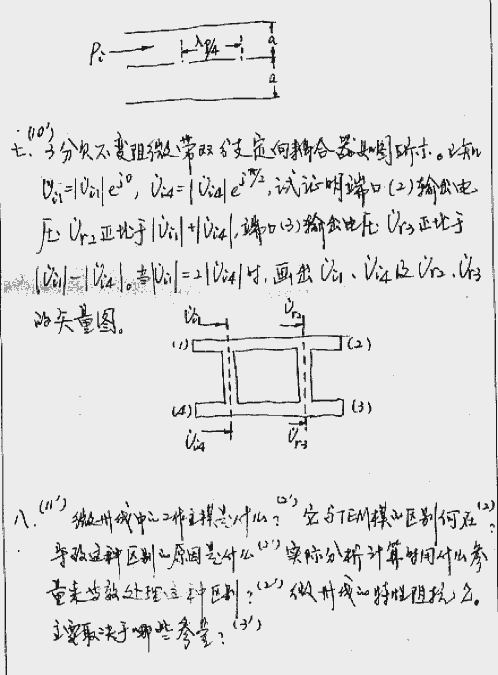 Pi
λg/4
a
a
(10')
七、3分贝不变阻微带双分支定向耦合器如图所示。已知
U̇i1=|U̇i1|e^j0, U̇i4=|U̇i4|e^jπ/2, 试证明端口(2)输出电
压 U̇r2 正比于|U̇i1|+|U̇i4|, 端口(3)输出电压 U̇r3 正比于
|U̇i1|-|U̇i4|。当|U̇i1|=2|U̇i4|时, 画出 U̇i1、U̇i4 及 U̇r2、U̇r3
的矢量图。
U̇i1 U̇r2
(1) (2)
(4) (3)
U̇i4 U̇r3
八.(11') 微带线中的工作主模是什么?(2') 它与TEM模的区别何在(2)?
导致这种区别的原因是什么(2') 实际分析计算时用什么参
量来等效处理这种区别?(2') 微带线的特性阻抗Z0
主要取决于哪些参量?(3')